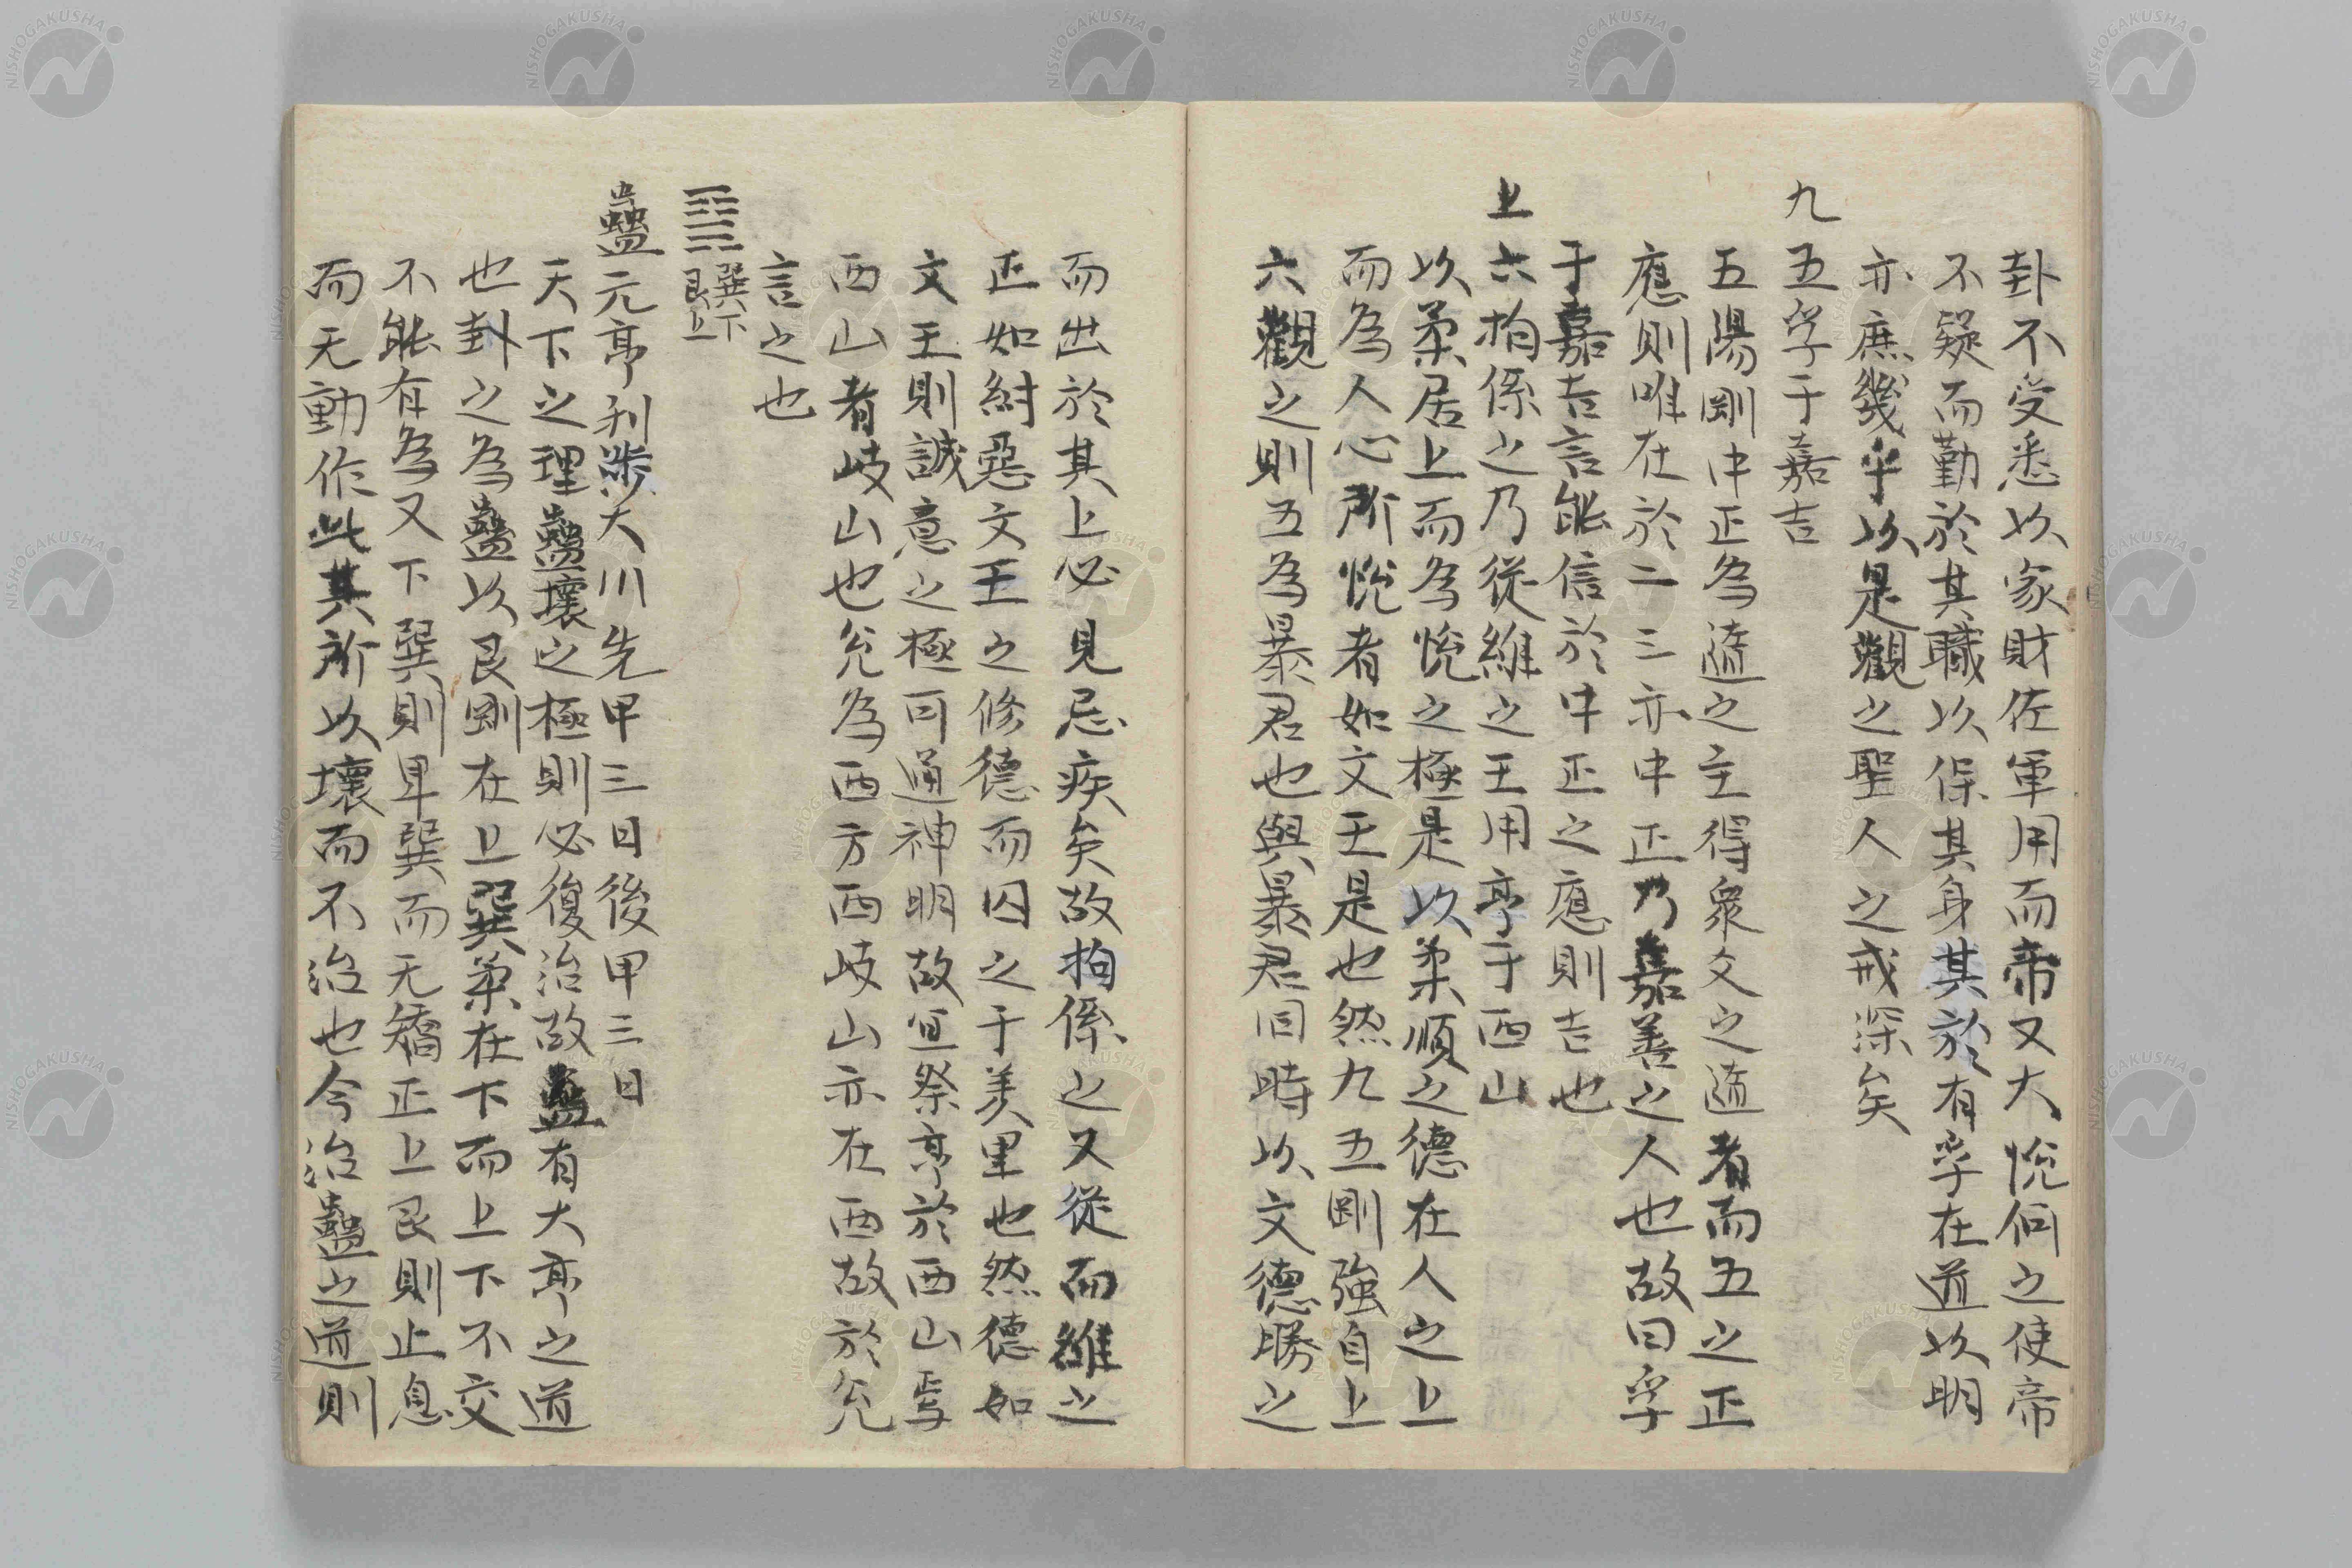 卦不受悉以家財佐軍用而帝又大悅何之使帝
不疑而勤於其職以保其身其於有孚在道以明
亦庶幾乎以是觀之聖人之戒深矣
九五孚于嘉吉
五陽剛中正為隨之主得衆爻之隨者而五之正
應則唯在於二三亦中正乃嘉善之人也故曰孚
于嘉吉言能信於中正之應則吉也
上六拘係之乃從維之王用亨于西山
以柔居上而為悅之極是以柔順之德在人之上
而為人心所悅者如文王是也然九五剛強自上
六觀之則五為暴君也與暴君同時以文德勝之
而出於其上必見忌疾矣故拘係之又從而維之
正如紂惡文王之修德而囚之于羑里也然德如
文王則誠意之極可通神明故宜祭亨於西山焉
西山者岐山也兌為西方西岐山亦在西故於兌
言之也
䷑巽下艮上
蠱元亨利涉大川先甲三日後甲三日
天下之理蠱壞之極則必復治故蠱有大亨之道
也卦之為蠱以艮剛在上巽柔在下而上下不交
不能有為又下巽則卑巽而无矯正上艮則止息
而无動作此其所以壞而不治也今治蠱之道則
NISHOGAKUSHA